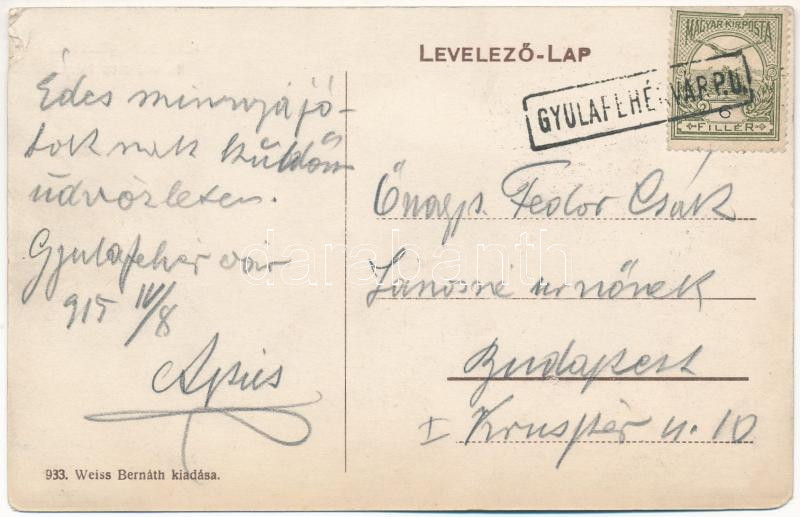 LEVELEZŐ-LAP
MAGYAR KIR. POSTA
6
FILLÉR
GYULAFEHÉRVÁR P.U.
Édes
toknak küldöm
üdvözletem.
Gyulafehérvár
915 IV/8
Apus
Őnags. Fedor Csák
Jánosné úrnőnek
Budapest
I u. 10
933. Weiss Bernáth kiadása.
darabanth